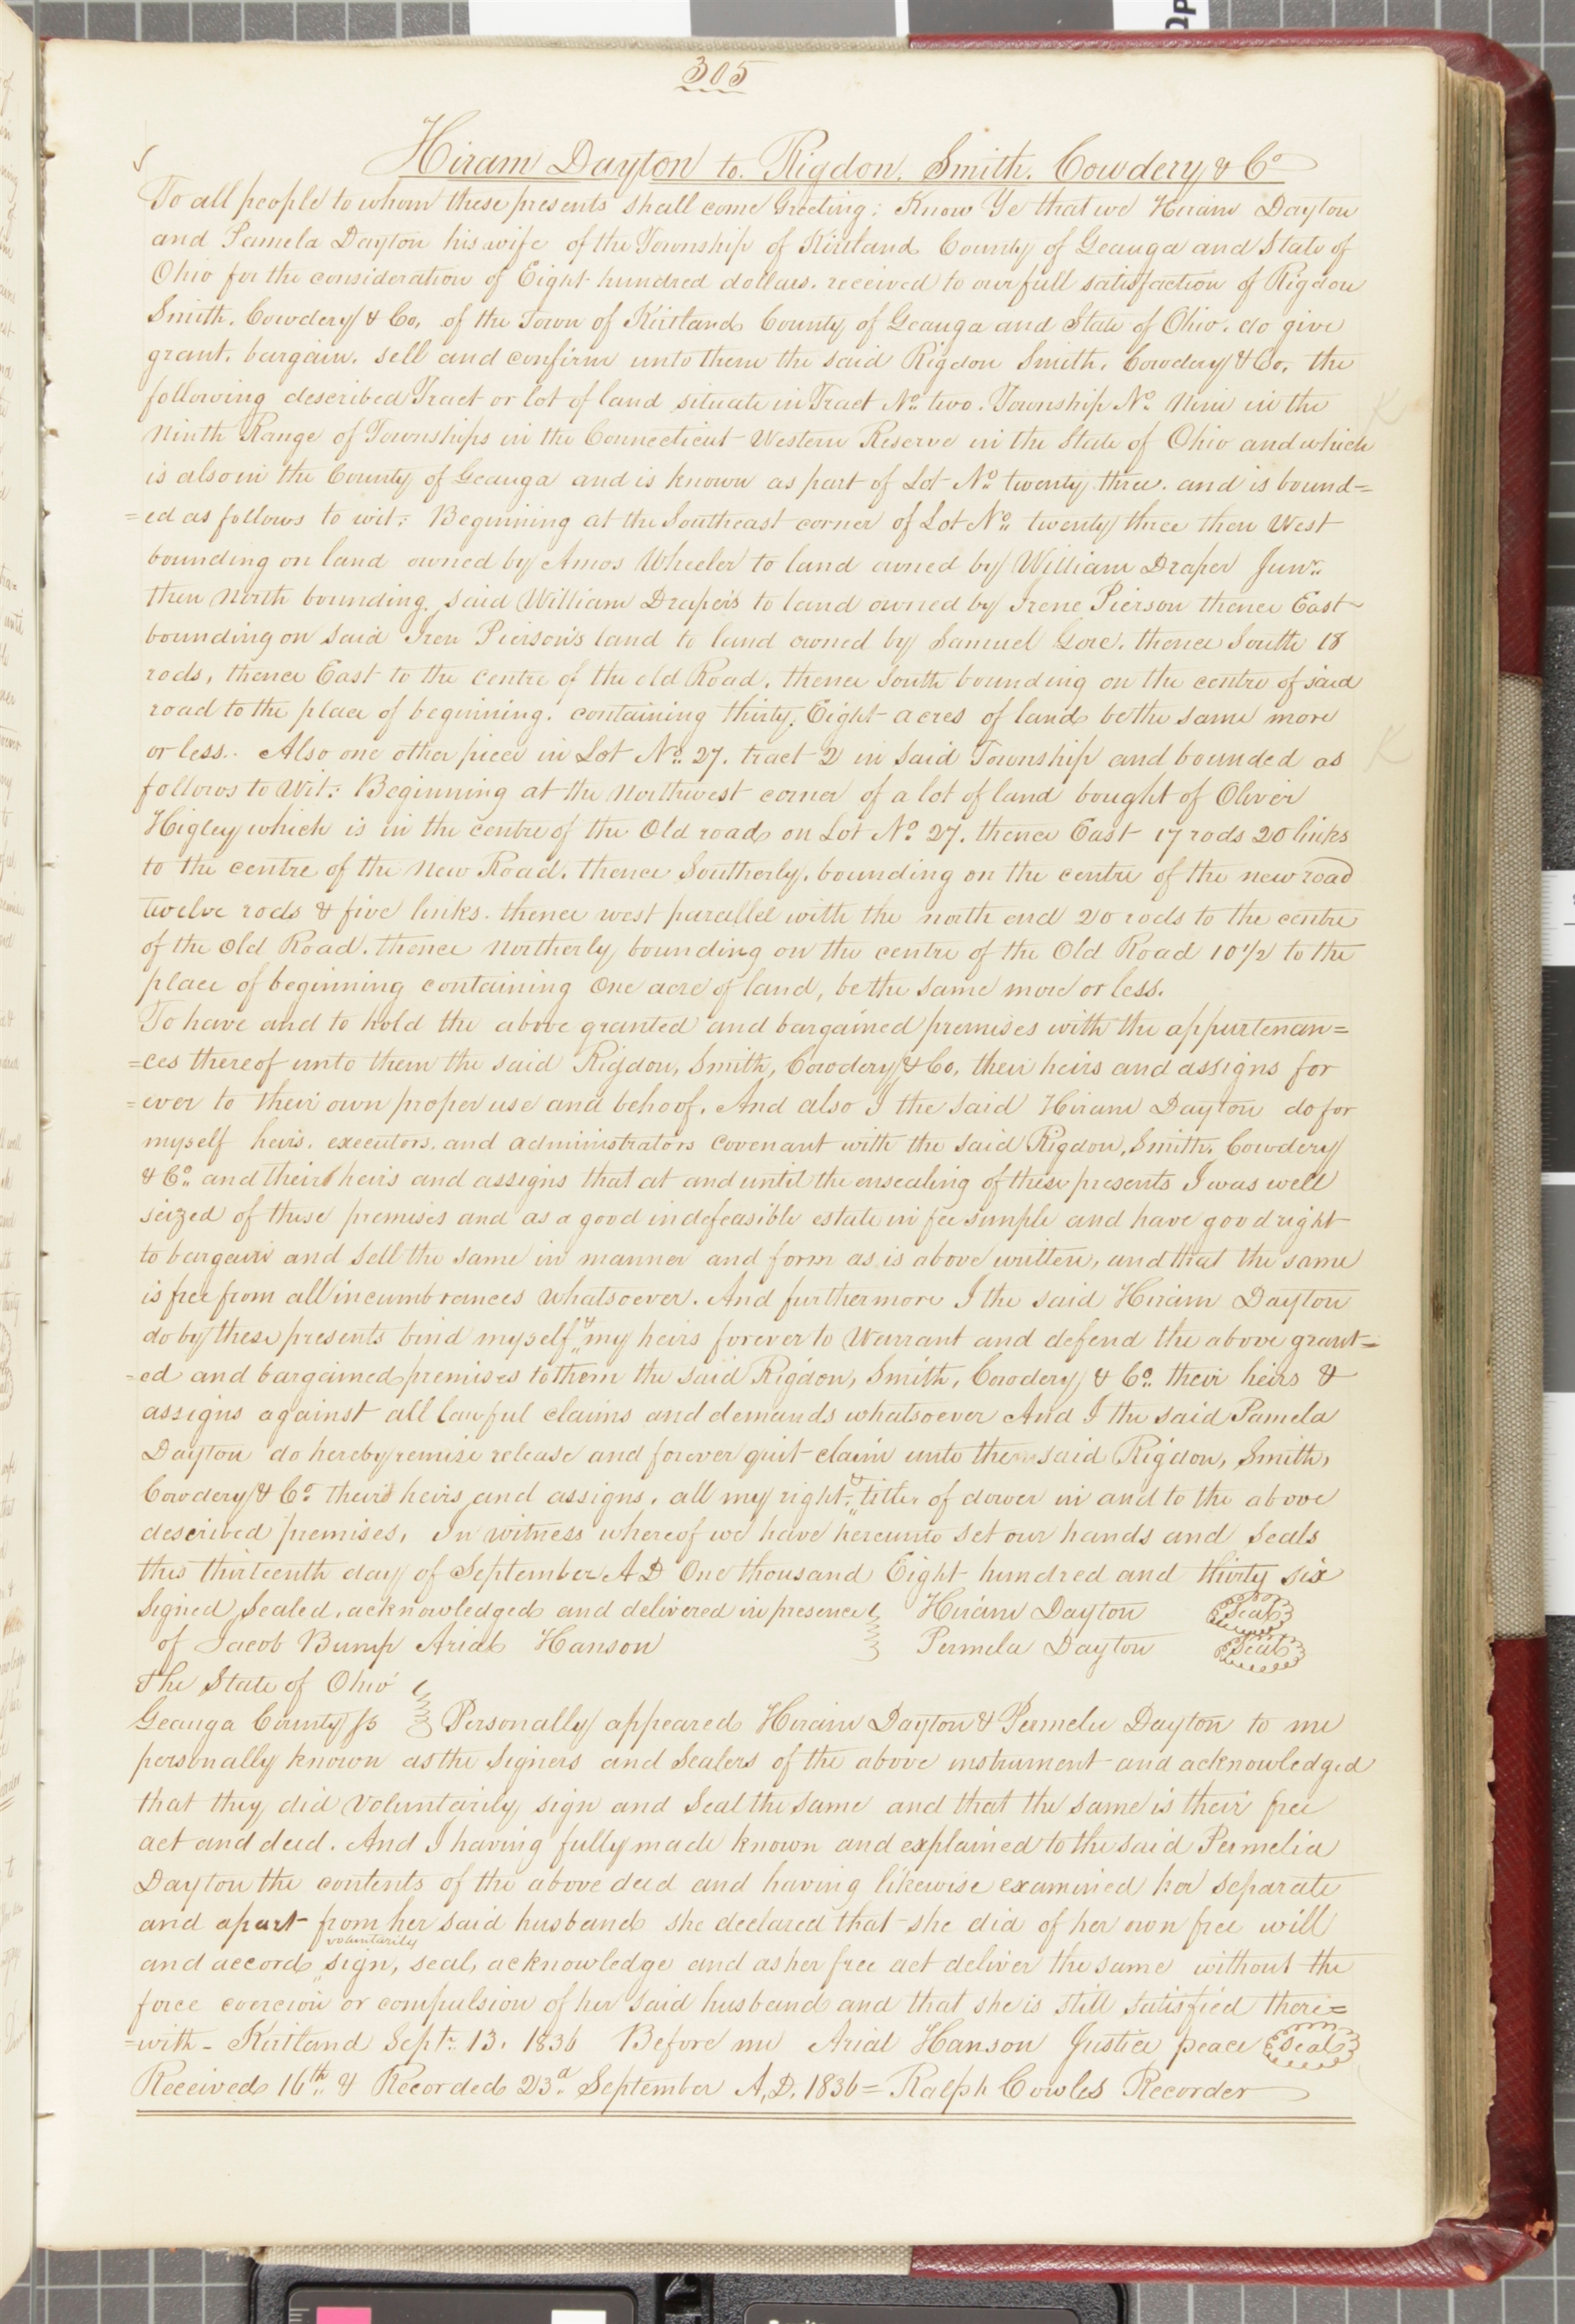 305
Hiram Dayton to Rigdon. Smith. Cowdery & Co
To all people to whom these presents shall come Greeting: Know Ye that we Hiram Dayton
and Pamela Dayton his wife of the Township of Kirtland County of Geauga and State of
Ohio for the consideration of Eight hundred dollars. received to our full satisfaction of Rigdon
Smith. Cowdery & Co. of the Town of Kirtland County of Geauga and State of Ohio. do give
grant. bargain. sell and confirm unto them the said Rigdon Smith. Cowdery & Co. the
following described Tract or lot of land situate in Tract No. two. Township No. Nine in the
Ninth Range of Townships in the Connecticut Western Reserve in the State of Ohio and which
is also in the County of Geauga and is known as part of Lot No. twenty three. and is bound=
=ed as follows to wit: Beginning at the Southeast corner of Lot No. twenty three then West
bounding on land owned by Amos Wheeler to land owned by William Draper Junr.
then North bounding said William Draper's to land owned by Irene Pierson thence East
bounding on said Iren Pierson's land to land owned by Samuel Gore. thence South 18
rods, thence East to the centre of the old Road. thence South bounding on the centre of said
road to the place of beginning. containing thirty Eight acres of land be the same more
or less. Also one other piece in Lot No. 27. tract 2 in said Township and bounded as
follows to Wit: Beginning at the Northwest corner of a lot of land bought of Oliver
Higley which is in the centre of the Old road on Lot No. 27. thence East 17 rods 20 links
to the centre of the New Road. thence Southerly. bounding on the centre of the new road
twelve rods & five links. thence west parallel with the north end 20 rods to the centre
of the Old Road. thence Northerly bounding on the centre of the Old Road 10 1/2 to the
place of beginning containing One acre of land, be the same more or less.
To have and to hold the above granted and bargained premises with the appurtenan=
=ces thereof unto them the said Rigdon, Smith, Cowdery & Co. their heirs and assigns for
=ever to their own proper use and behoof. And also I the said Hiram Dayton do for
myself heirs. executors. and administrators covenant with the said Rigdon, Smith. Cowdery
& Co. and their heirs and assigns that at and until the ensealing of these presents I was well
seized of these premises and as a good indefeasible estate in fee simple and have good right
to bargain and sell the same in manner and form as is above written, and that the same
is free from all incumbrances whatsoever. And furthermore I the said Hiram Dayton
do by these presents bind myself & my heirs forever to Warrant and defend the above grant=
=ed and bargained premises to them the said Rigdon, Smith, Cowdery, & Co. their heirs &
assigns against all lawful claims and demands whatsoever And I the said Pamela
Dayton do hereby remise release and forever quit claim unto them said Rigdon, Smith,
Cowdery & Co. their heirs and assigns, all my right & title of dower in and to the above
described premises, In witness whereof we have hereunto set our hands and Seals
this thirteenth day of September A D One thousand Eight hundred and thirty six
Signed Sealed. acknowledged and delivered in presence Hiram Dayton Seal
of Jacob Bump Arial Hanson Permela Dayton Seal
The State of Ohio
Geauga County ss Personally appeared Hiram Dayton & Permela Dayton to me
personally known as the Signers and Sealers of the above instrument and acknowledged
that they did Voluntarily sign and Seal the same and that the same is their free
act and deed. And I having fully made known and explained to the said Permelia
Dayton the contents of the above deed and having likewise examined her separate
and apart from her said husband she declared that she did of her own free will
and accord voluntarily sign, seal, acknowledge and as her free act deliver the same without the
force coercion or compulsion of her said husband and that she is still satisfied there=
=with - Kirtland Sept. 13. 1836 Before me Arial Hanson Justice peace Seal
Received 16th. & Recorded 23d. September A.D. 1836 = Ralph Cowles Recorder